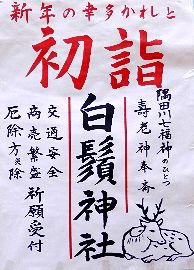 新年の幸多かれと
初詣
隅田川七福神のひとつ
寿老神奉斎
白鬚神社
交通安全
商売繁盛
厄除方災除
祈願受付